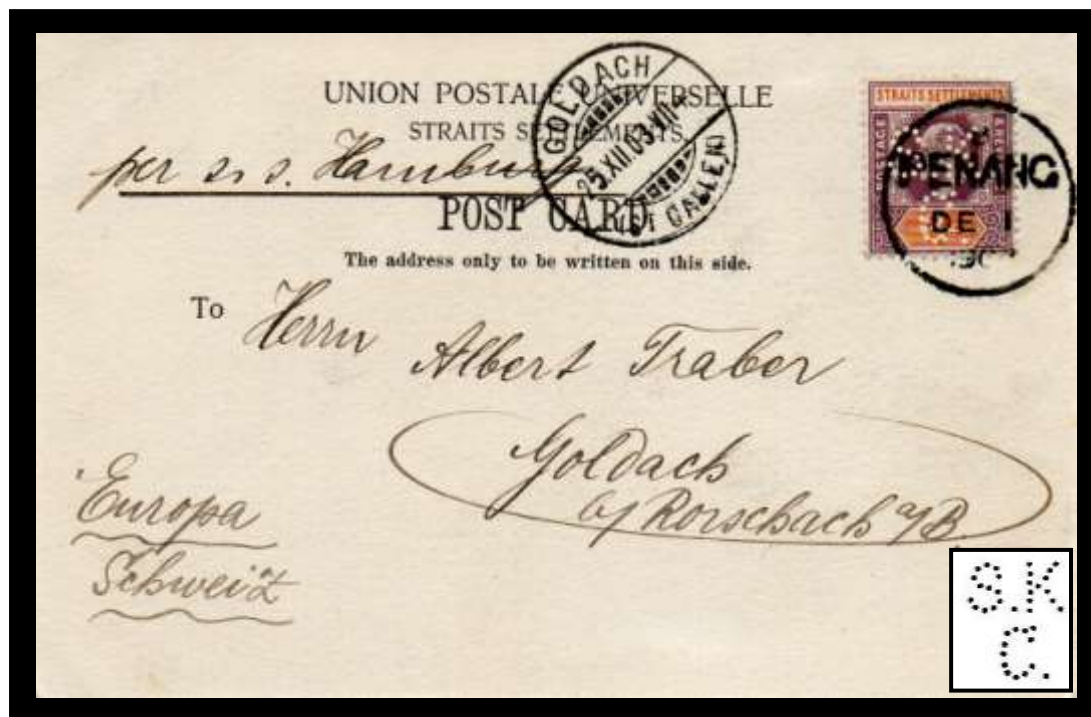 UNION POSTALE UNIVERSELLE
STRAITS SETTLEMENTS.
per s. s. Hamburg
POST CARD
The address only to be written on this side.
GOLDACH
25.XII.03.VIII
(ST. GALLEN)
STRAITS SETTLEMENTS
POSTAGE
PENANG
DE 1
To Herrn Albert Traber
Goldach
b/ Rorschach a/B.
Europa
Schweiz
S.K
C.